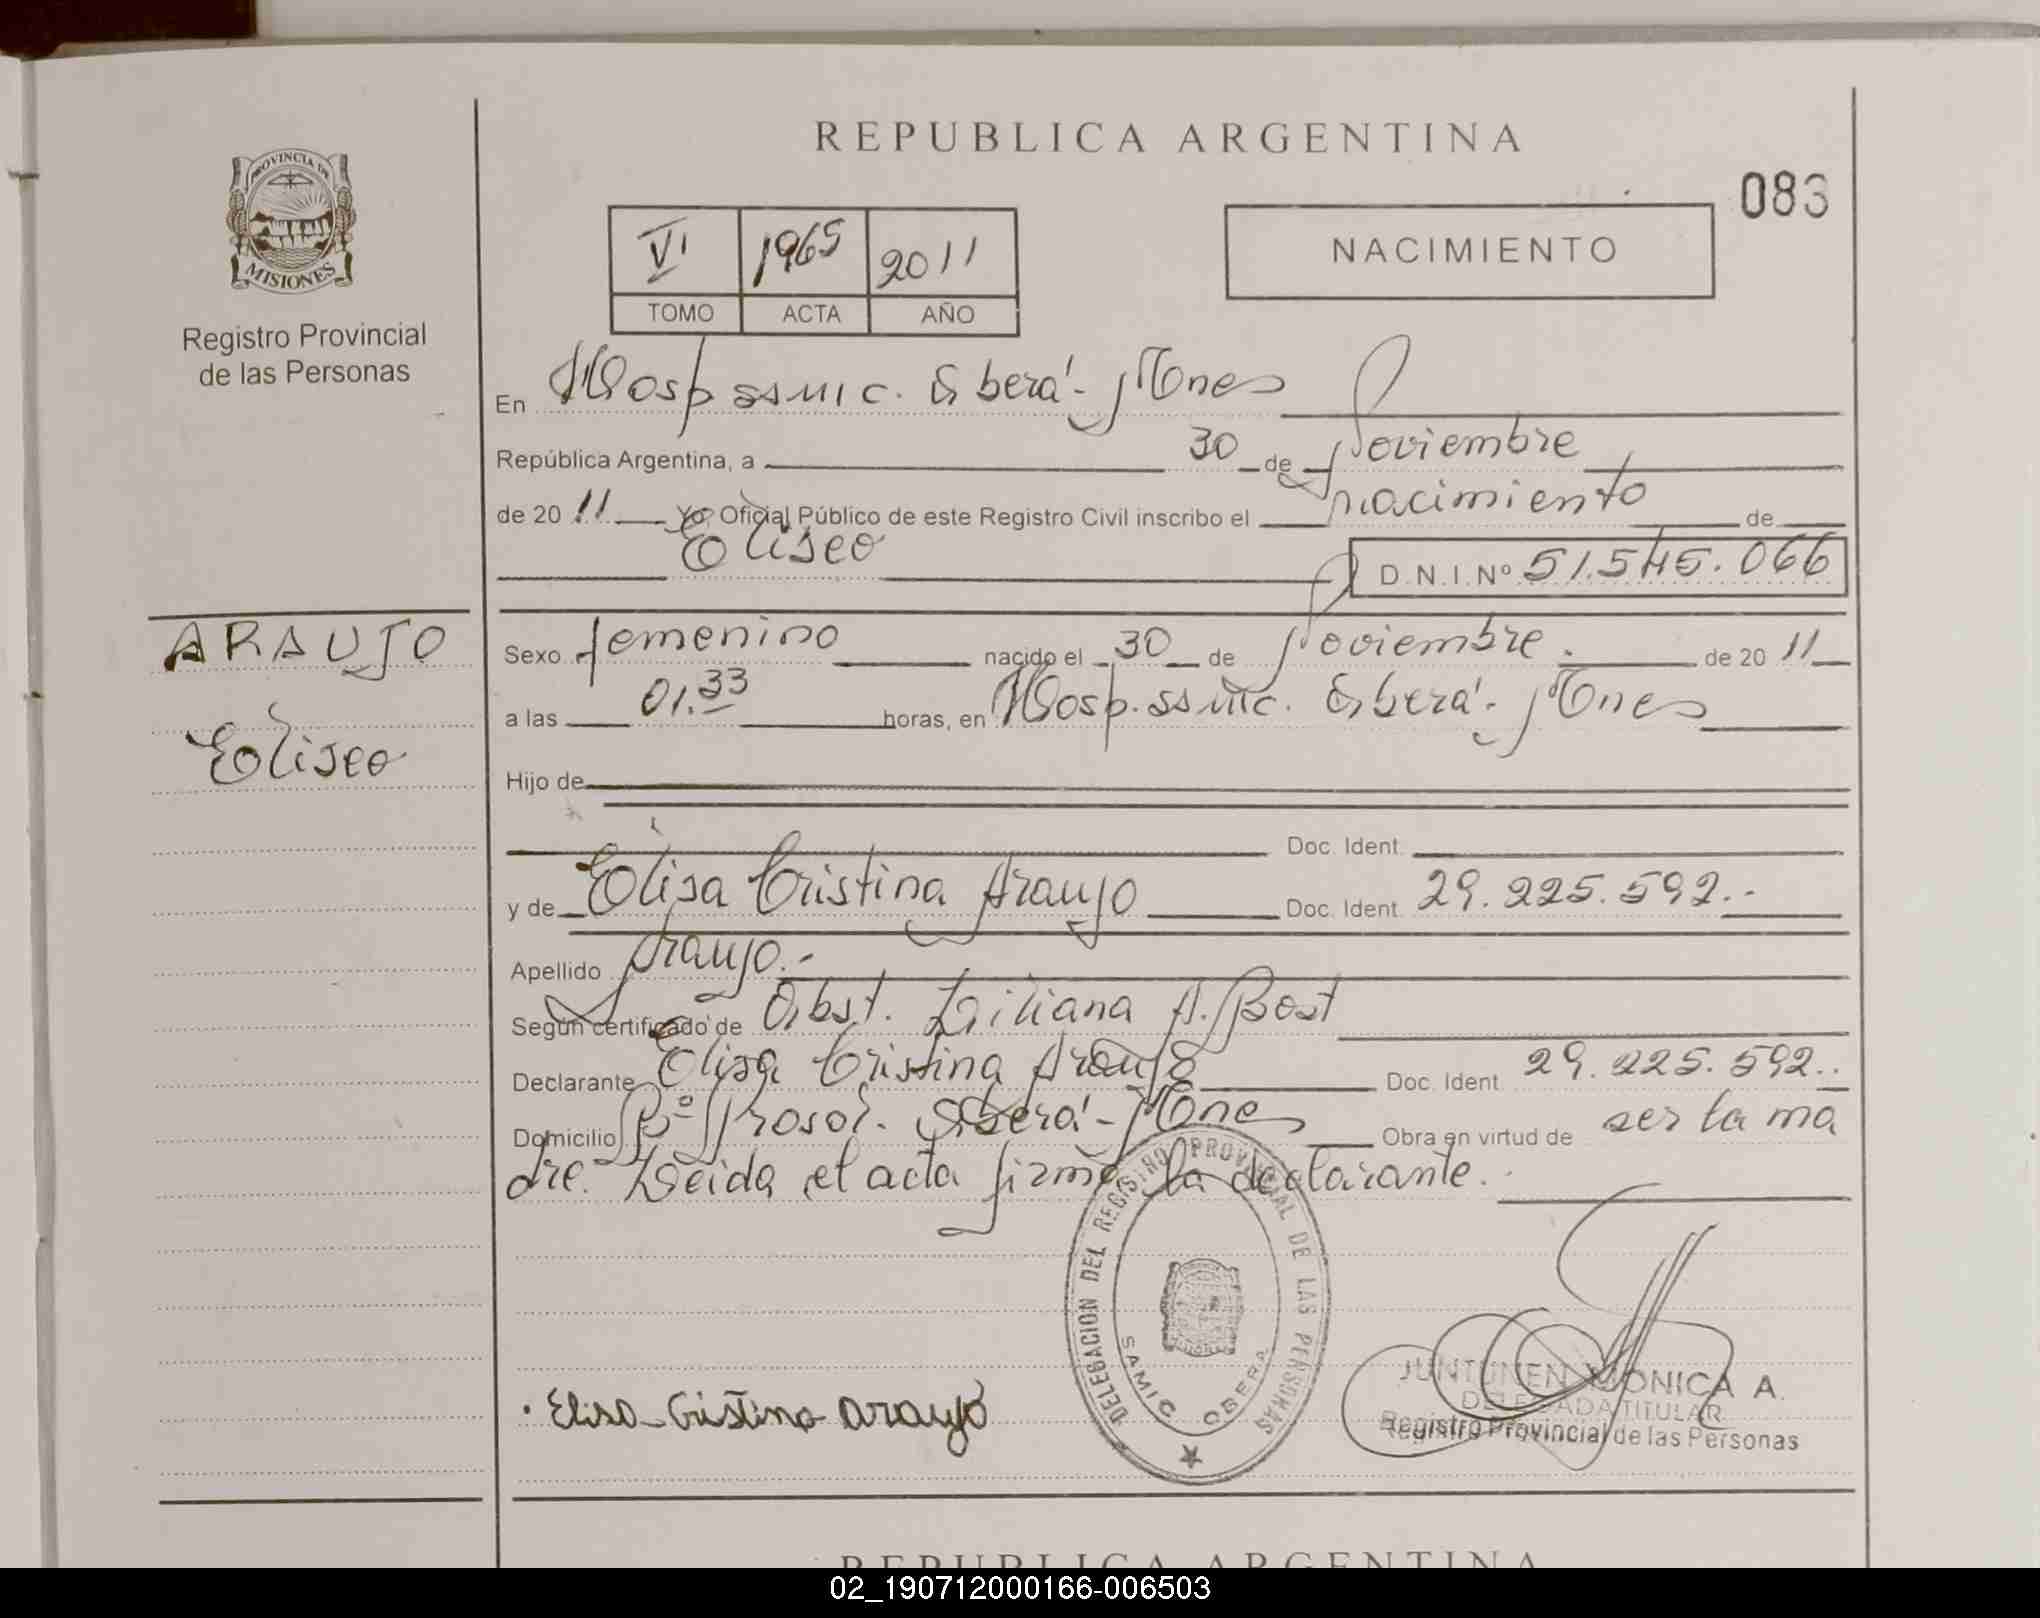 REPUBLICA ARGENTINA
083
PROVINCIA DE
MISIONES
Registro Provincial
de las Personas
VI 1965 2011
TOMO ACTA AÑO
NACIMIENTO
En Hosp. ssmic. Oberá - Mnes
República Argentina, a 30 de Noviembre
de 20 11 Yo, Oficial Público de este Registro Civil inscribo el nacimiento de
Eliseo D.N.I.Nº 51.545.066
ARAUJO
Eliseo
Sexo femenino nacido el 30 de Noviembre. de 20 11
a las 01.33 horas, en Hosp. ssmic. Oberá - Mnes
Hijo de
Doc. Ident.
y de Elisa Cristina Araujo Doc. Ident. 29.225.592.-
Apellido Araujo.-
Según certificado de Obst. Liliana A. Bost
Declarante Elisa Cristina Araujo Doc. Ident. 29.225.592..
Domicilio Bº Prosol. Oberá - Mnes Obra en virtud de ser la ma
dre. Leida el acta firma la declarante.
DELEGACION DEL REGISTRO PROVINCIAL DE LAS PERSONAS
SAMIC OBERA
Elisa Cristina Araujo
JUNTUNEN MONICA A.
DELEGADA TITULAR
Registro Provincial de las Personas
REPUBLICA ARGENTINA
02_190712000166-006503